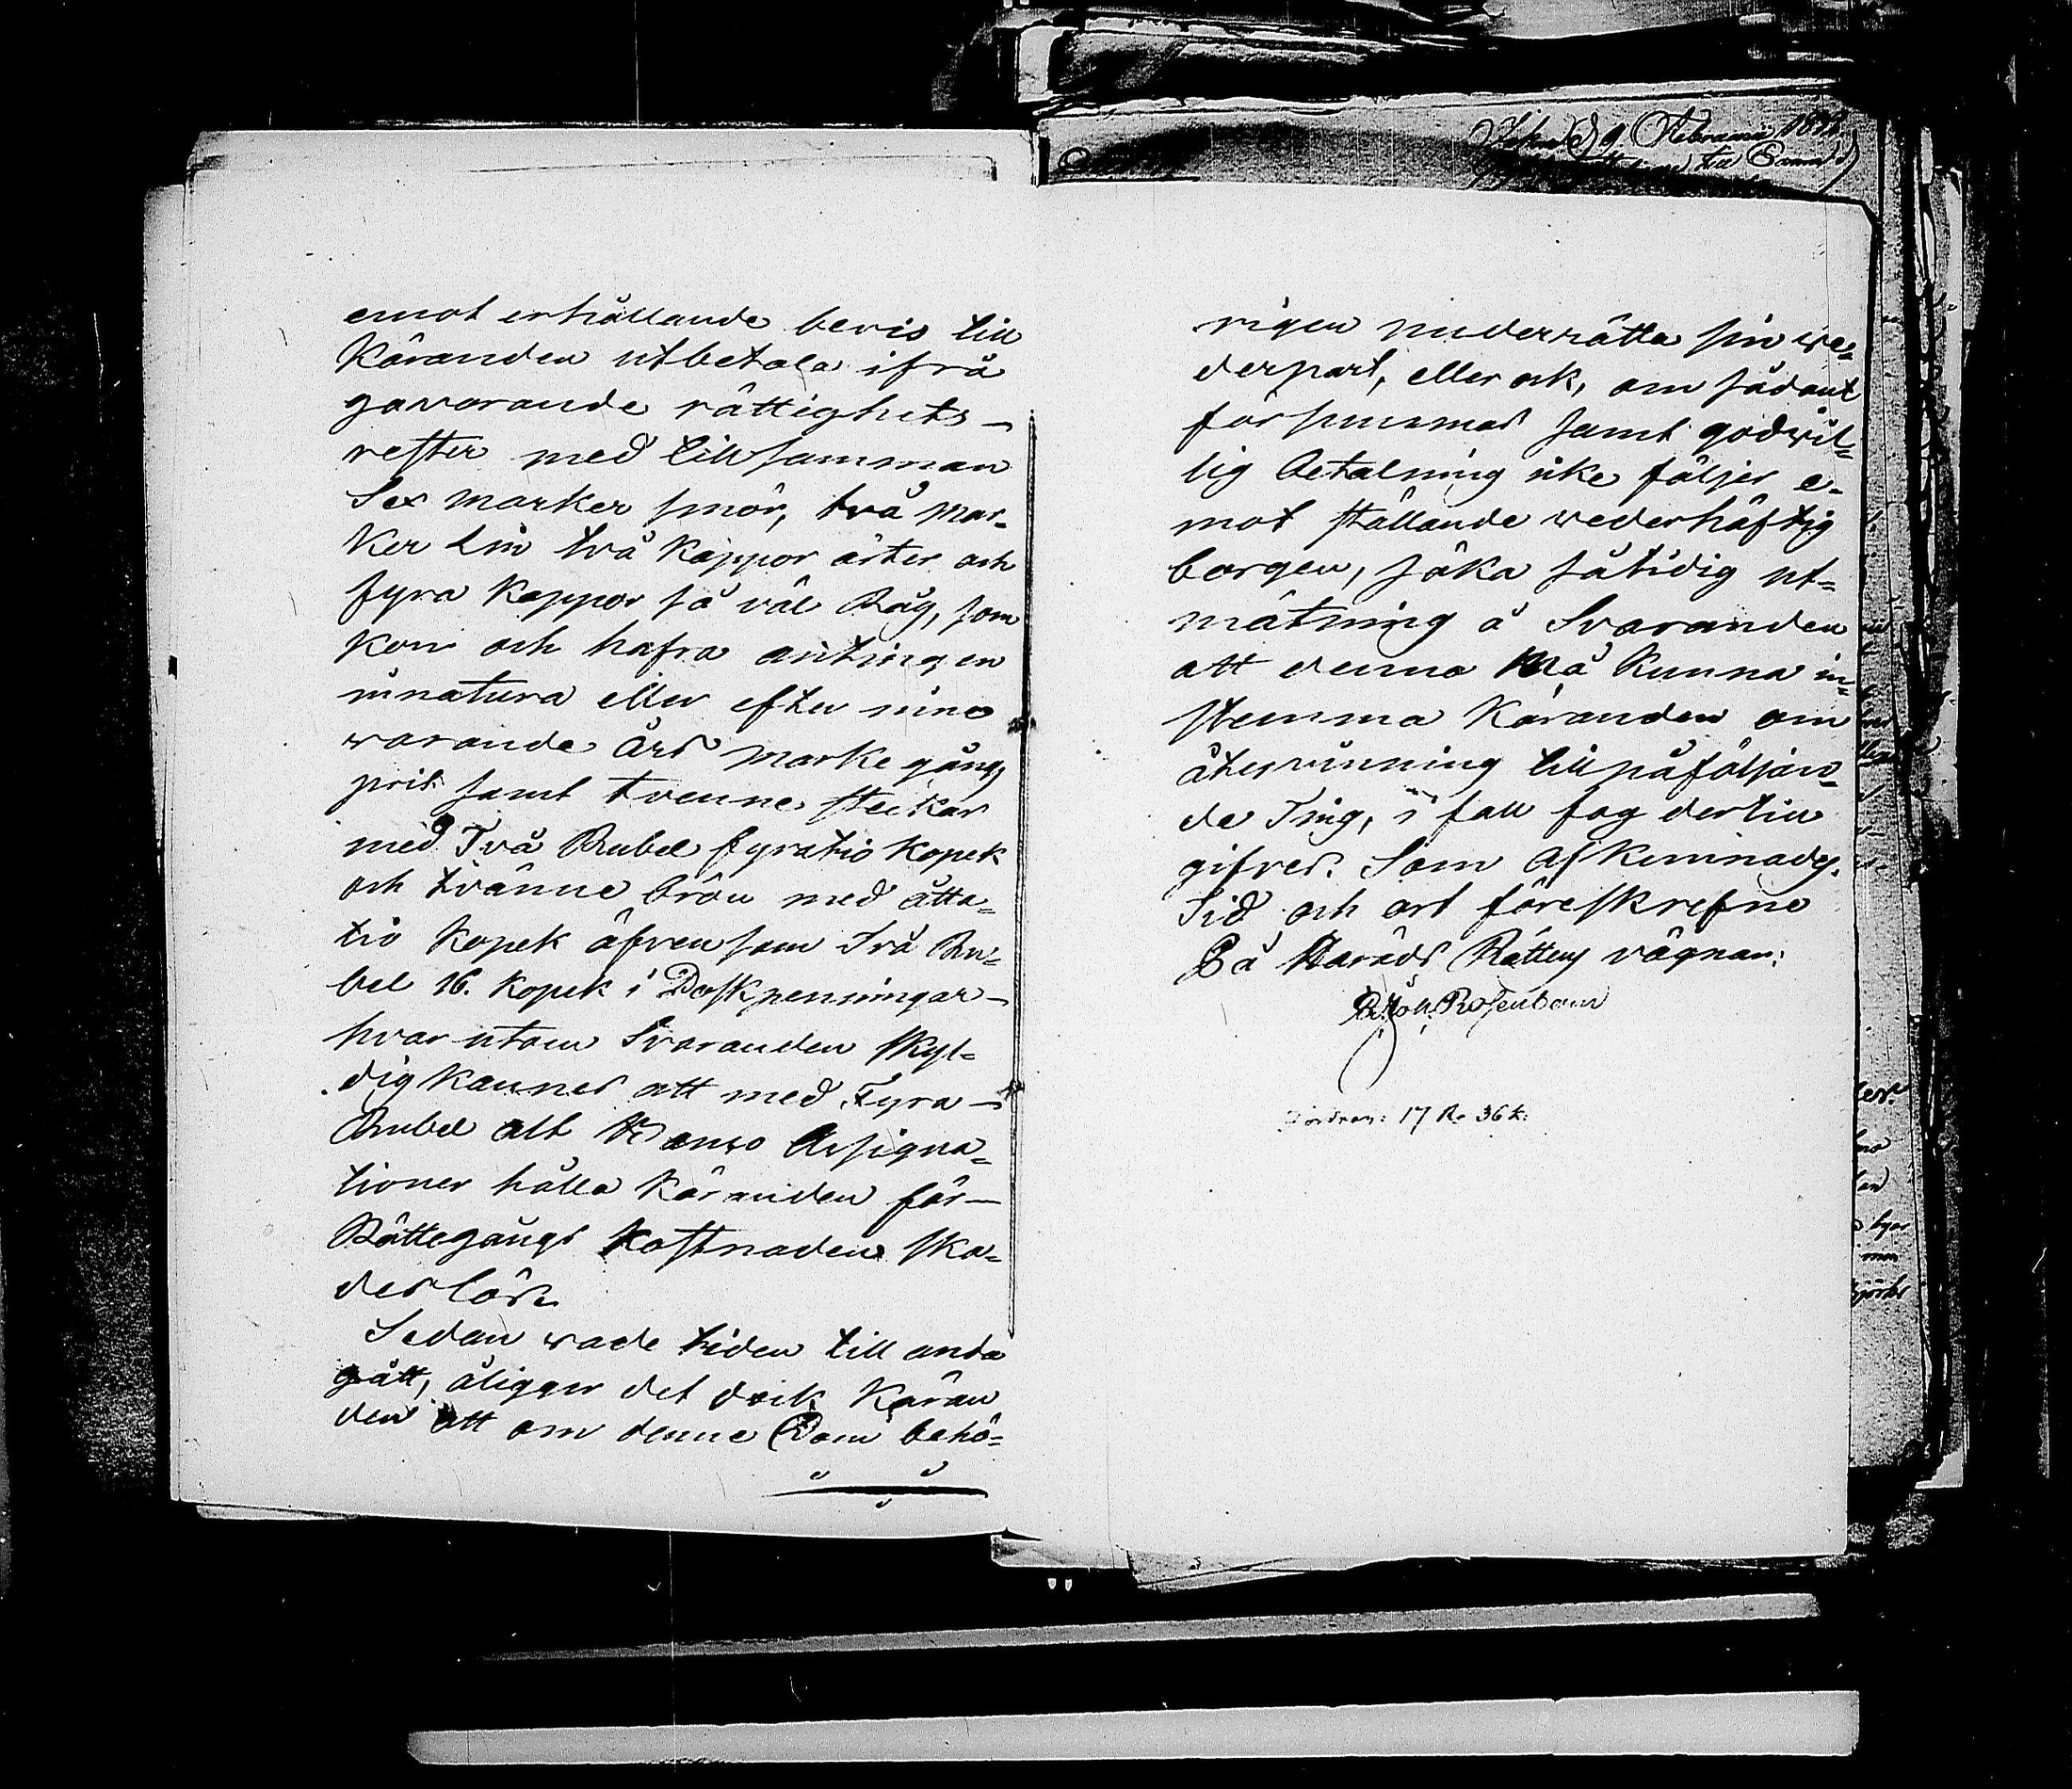 emot erhållande bevis till
Käranden utbetala ifrå
gavarande rättighets-
rester med tillsamman
Sex marker smör, två mar-
ker Lin två kappor ärter och
fyra kappor så väl Råg, som
korn och hafra antingen
innatura eller efter nino
warande års markegångs
pris samt tvenne steckar
med Två Rubel fyratio kopek
och tvänne brön med åtta-
tio kopek äfvensom Två Ru-
bel 16. kopek i Daskpenningar-
hvar utom Svaranden skyl-
dig kännes att med Fyra-
Rubel allt Banco Assigna-
tioner hålla Käranden för-
Rättegångs kostnaden ska-
deslös.
Sedan wade tiden till ända
gått, åligger det dock Käran
den att om denne Dom behö-
rigen underrätta sin we-
derpart, eller ock, om sådant
försummas samt godwil-
lig betalning icke följer e-
mot ställande wederhäftig
borgen, söka såtidig ut-
mätning å Svaranden
att denna må kunna in-
stemma Käranden om
återvinning till påföljan-
de Ting, i fall fog dertill
gifves. Som afkunnades.
Tid och ort föreskrefne
På Härads Rättens vägnar:
Rosenbom
17 R. 36 k:
Februarii
till